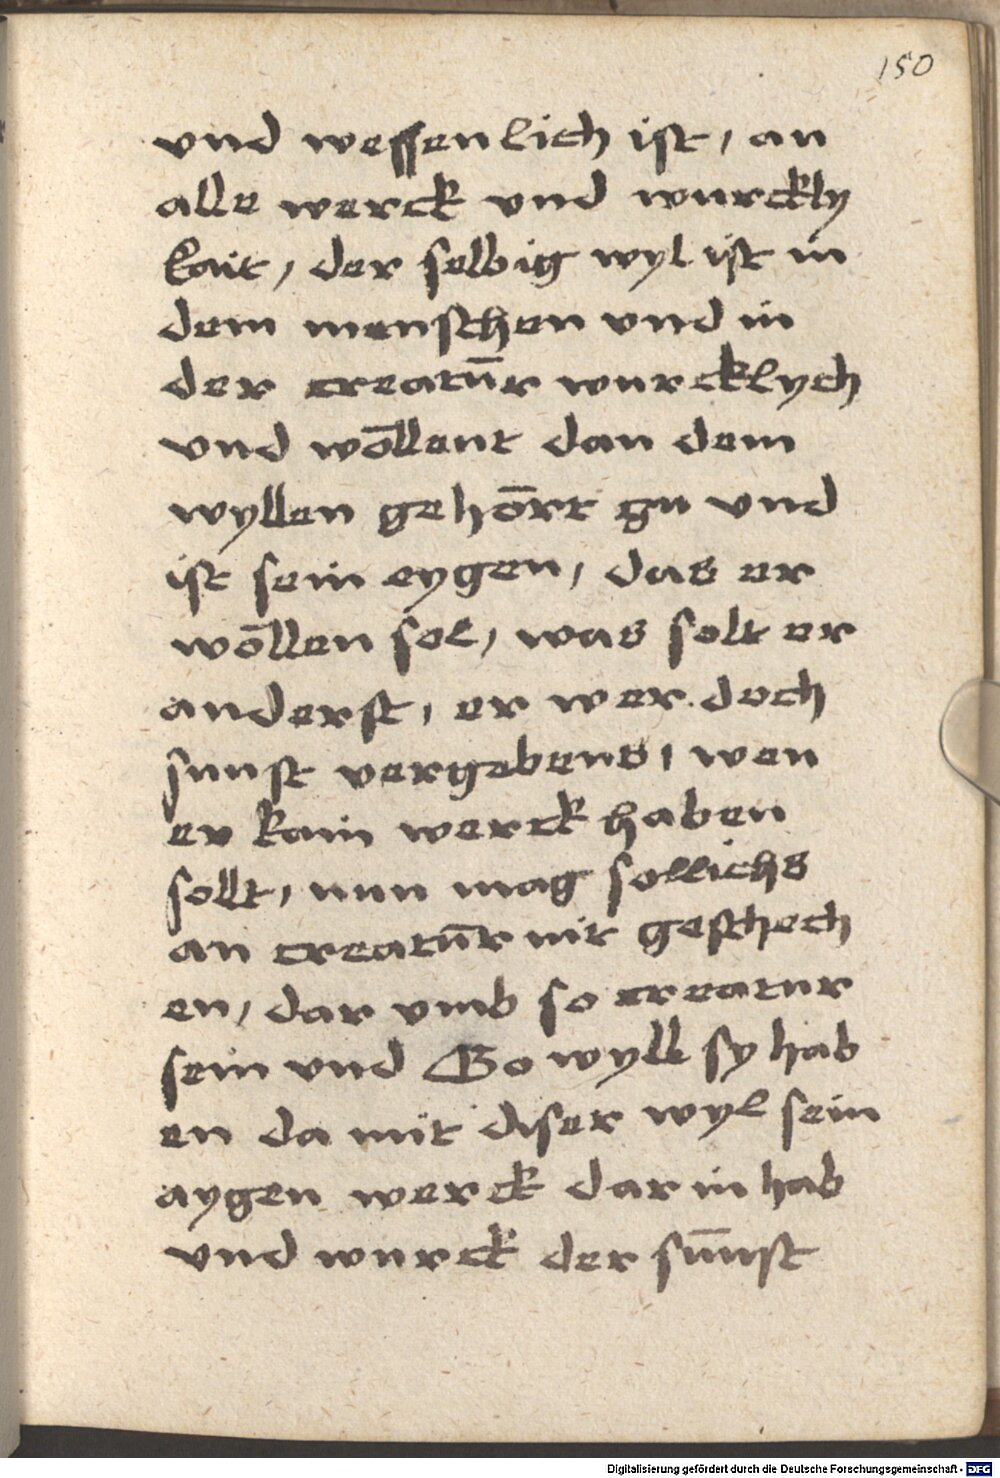 150
vnd wessenlich ist, an
alle werck vnd wurckly
kait, der selbig wyl ist in
dem menschen vnd in
der creatūr wurcklych
vnd wōllent dan dem
wyllen gehōrt zu vnd
ist sein eygen, das er
wōllen sol, was solt er
anderst, er wer doch
sunst vergebens, wen
er kain werck haben
sollt, nun mag sollichs
an creatūr nit geschech
en, dar vmb so creatur
sein vnd Go wyll sy hab
en da mit diser wyl sein
aygen werck dar in hab
vnd wurck der sūnst
Digitalisierung gefördert durch die Deutsche Forschungsgemeinschaft - DFG